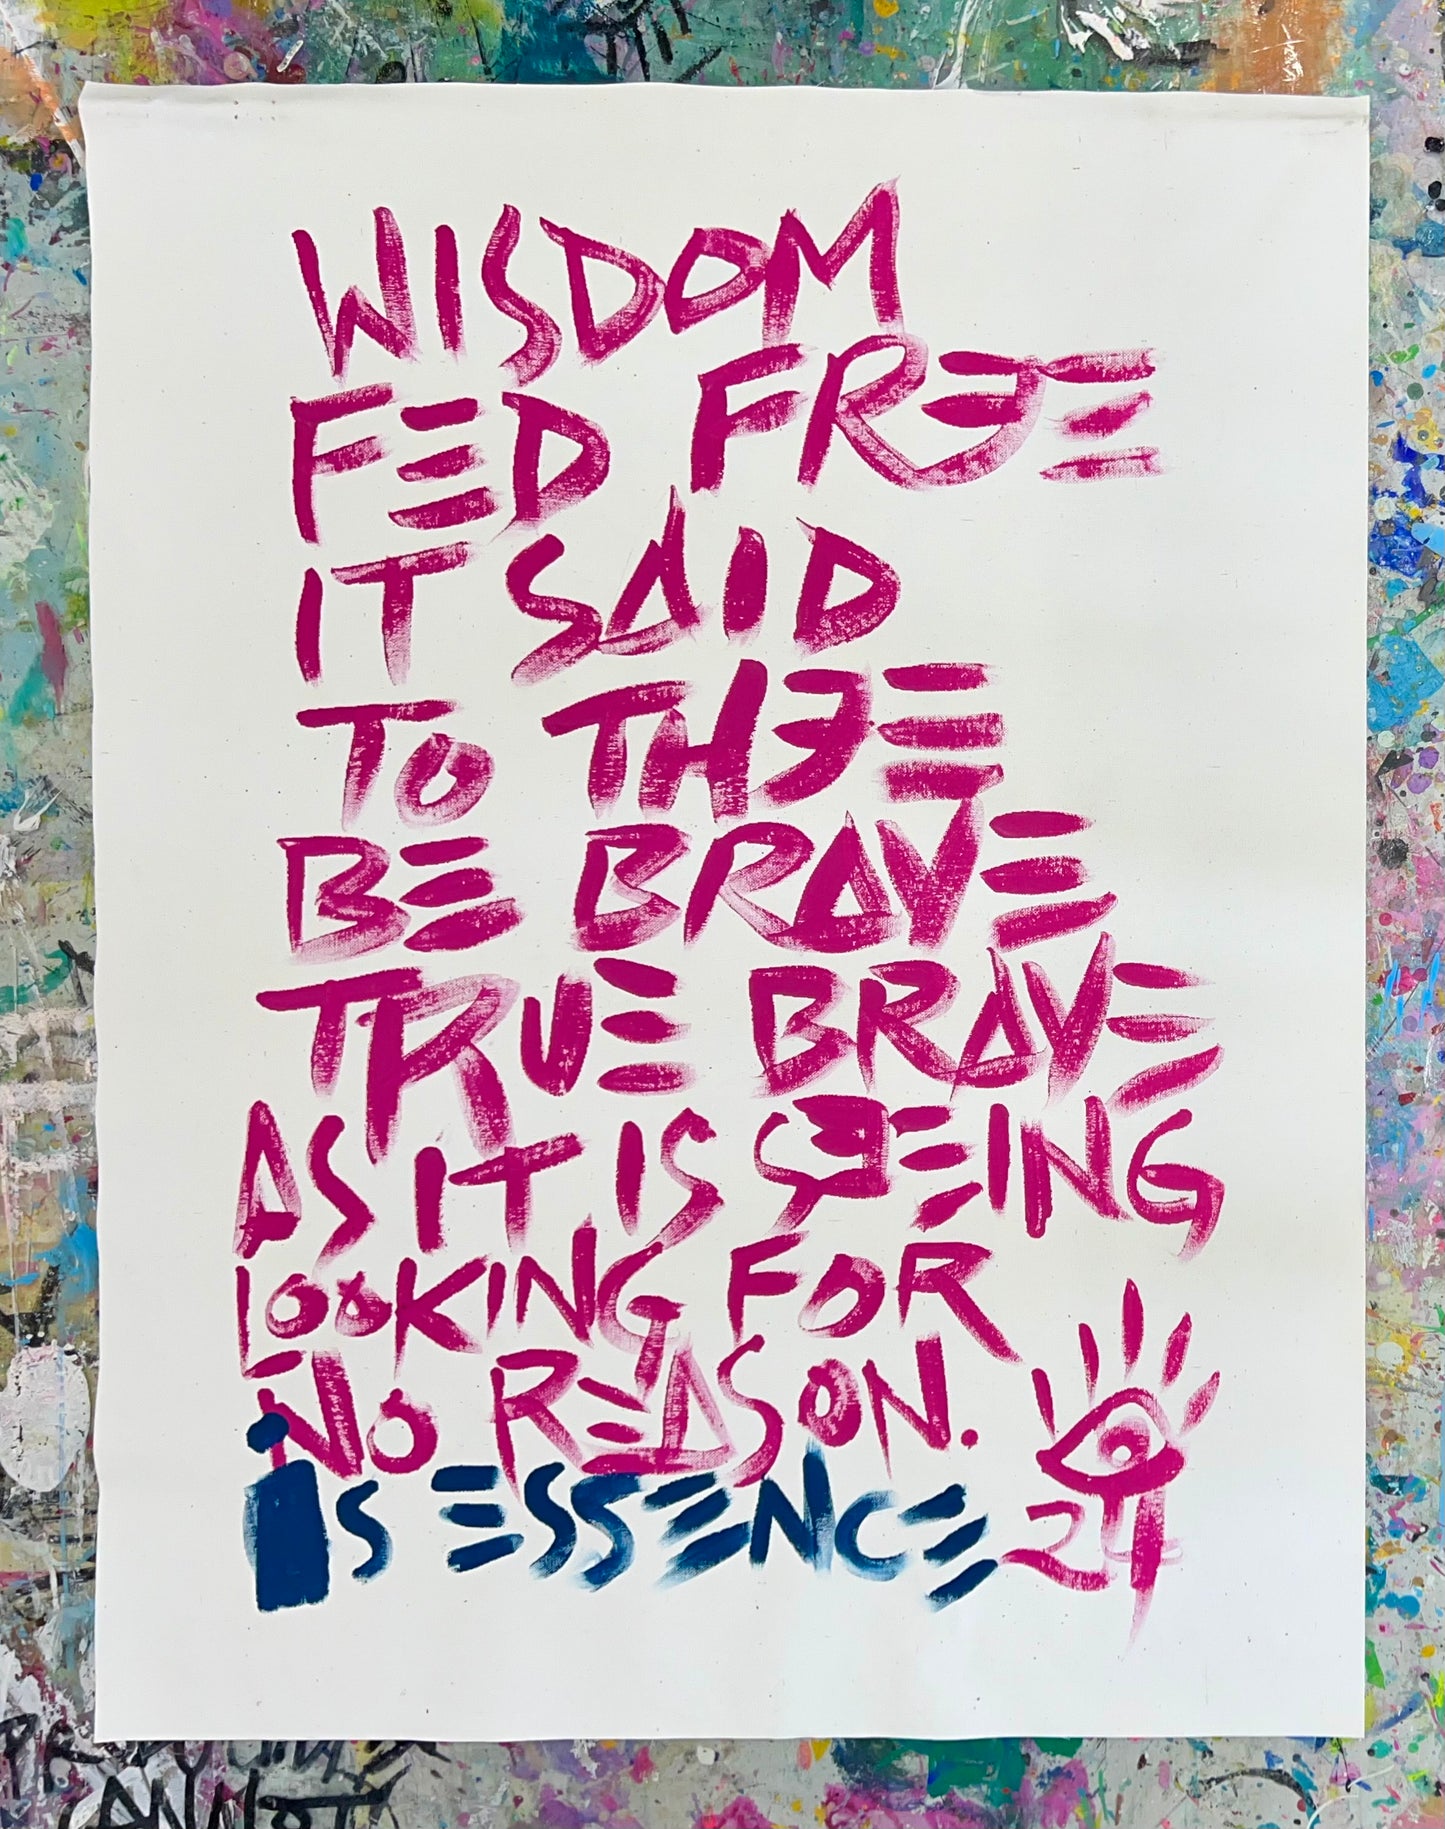 WISDOM
FED FREE
IT SAID
TO THEE
BE BRAVE
TRUE BRAVE
AS IT IS SEEING
LOOKING FOR
NO REASON.
IS ESSENCE 24
CANNOT